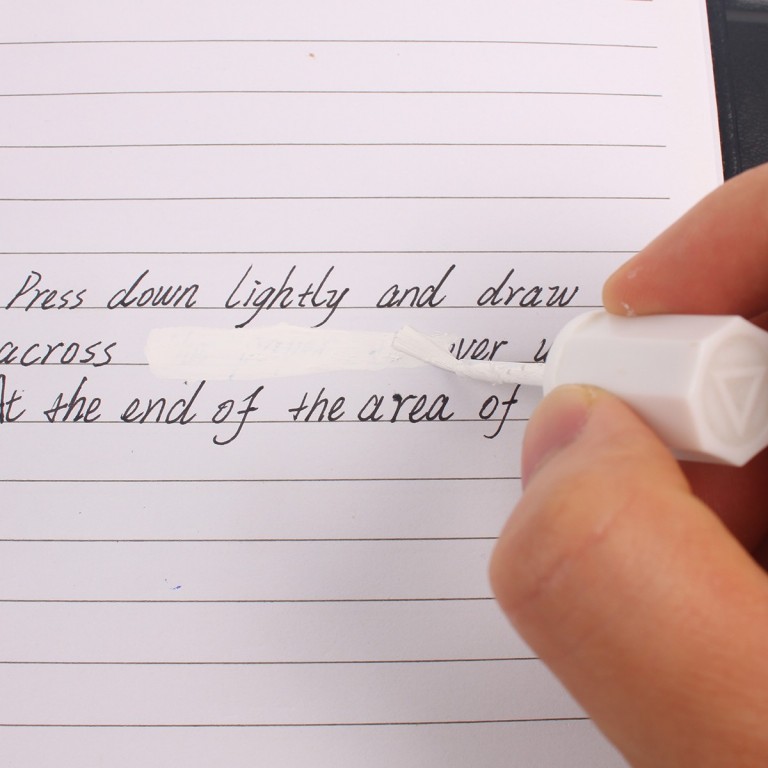 Press down lightly and draw
across
At the end of the area of